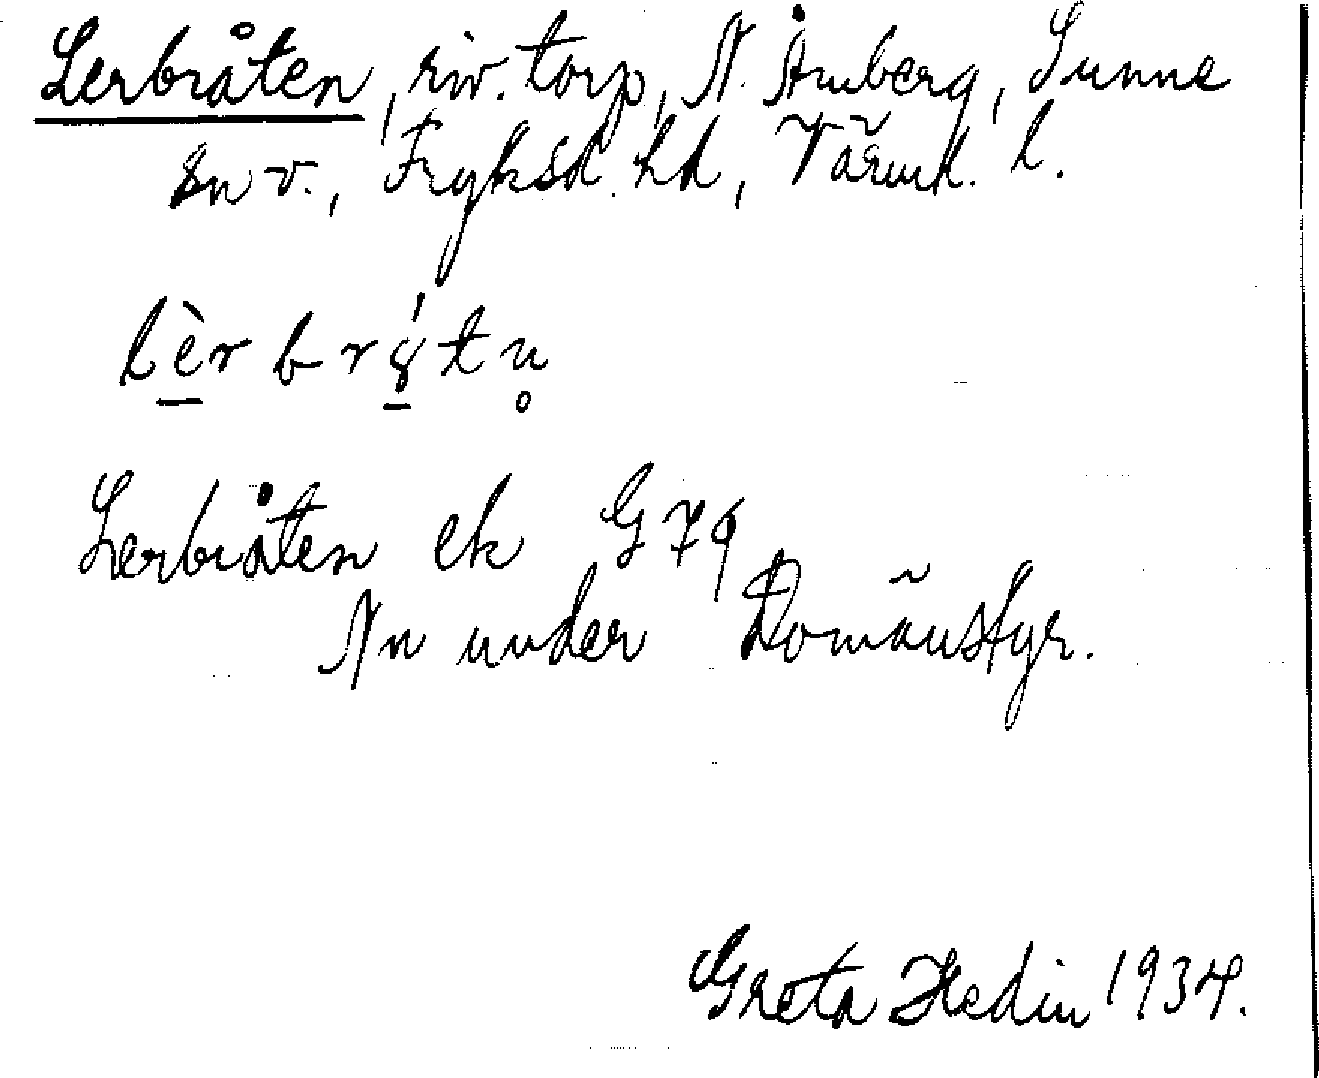 Lerbråten, riv. torp, N. Åmberg, Sunne
sn v., Fryksd. hd, Värml. l.
lèrbrǻtn̥
Lerbråten ek G 79
Nn under Domänstyr.
Greta Hedin 1934.